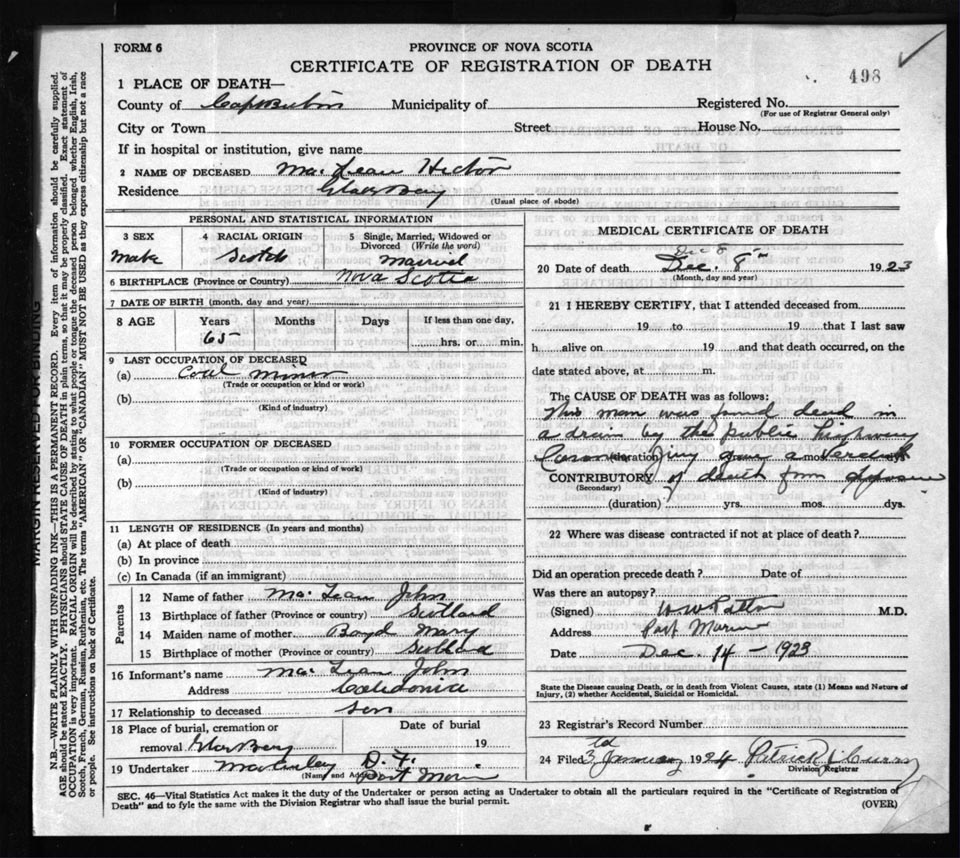 FORM 6
PROVINCE OF NOVA SCOTIA
CERTIFICATE OF REGISTRATION OF DEATH
498
1 PLACE OF DEATH—
County of Cape Breton Municipality of Registered No.
(For use of Registrar General only)
City or Town Street House No.
If in hospital or institution, give name
2 NAME OF DECEASED MacLean Hector
Residence Glace Bay
(Usual place of abode)
PERSONAL AND STATISTICAL INFORMATION
3 SEX 4 RACIAL ORIGIN 5 Single, Married, Widowed or Divorced (Write the word)
Male Scotch Married
6 BIRTHPLACE (Province or Country) Nova Scotia
7 DATE OF BIRTH (month, day and year)
8 AGE Years Months Days If less than one day,
65 hrs. or min.
9 LAST OCCUPATION OF DECEASED
(a) Coal Miner
(Trade or occupation or kind or work)
(b)
(Kind of industry)
10 FORMER OCCUPATION OF DECEASED
(a)
(Trade or occupation or kind or work)
(b)
(Kind of industry)
11 LENGTH OF RESIDENCE (In years and months)
(a) At place of death
(b) In province
(c) In Canada (if an immigrant)
Parents
12 Name of father MacLean John
13 Birthplace of father (Province or country) Scotland
14 Maiden name of mother Boyd Mary
15 Birthplace of mother (Province or country) Scotland
16 Informant's name MacLean John
Address Caledonia
17 Relationship to deceased Son
18 Place of burial, cremation or removal Glace Bay Date of burial 19
19 Undertaker D. F.
(Name and Address) Port Morien
MEDICAL CERTIFICATE OF DEATH
Dec 8th
20 Date of death Dec. 8th 1923
(Month, day and year)
21 I HEREBY CERTIFY, that I attended deceased from
19 to 19 that I last saw
h alive on 19 and that death occurred, on the
date stated above, at m.
The CAUSE OF DEATH was as follows:
This man was found dead in
a drain by the public highway
Coroner (duration) Jury gave a mos. Verdict dys
CONTRIBUTORY of death from exposure
(Secondary)
(duration) yrs. mos. dys.
22 Where was disease contracted if not at place of death?
Did an operation precede death? Date of
Was there an autopsy?
(Signed) M.D.
Address Port Morien
Date Dec. 14 – 1923
State the Disease causing Death, or in death from Violent Causes, state (1) Means and Nature of
Injury, (2) whether Accidental, Suicidal or Homicidal.
23 Registrar's Record Number
24 Filed 3rd January 1924 Patrick Curry
Division Registrar
SEC. 46—Vital Statistics Act makes it the duty of the Undertaker or person acting as Undertaker to obtain all the particulars required in the "Certificate of Registration of
Death" and to fyle the same with the Division Registrar who shall issue the burial permit.
(OVER)
MARGIN RESERVED FOR BINDING
N.B.—WRITE PLAINLY WITH UNFADING INK—THIS IS A PERMANENT RECORD. Every item of information should be carefully supplied.
AGE should be stated EXACTLY. PHYSICIANS should STATE CAUSE OF DEATH in plain terms, so that it may be properly classified. Exact statement of
OCCUPATION is very important. RACIAL ORIGIN will be described by stating to what people or tongue the deceased person belonged, whether English, Irish,
Scotch, French, German, Russian, Ruthenian, etc. The terms "AMERICAN" OR "CANADIAN" MUST NOT BE USED as they express citizenship but not a race
or people. See instructions on back of Certificate.